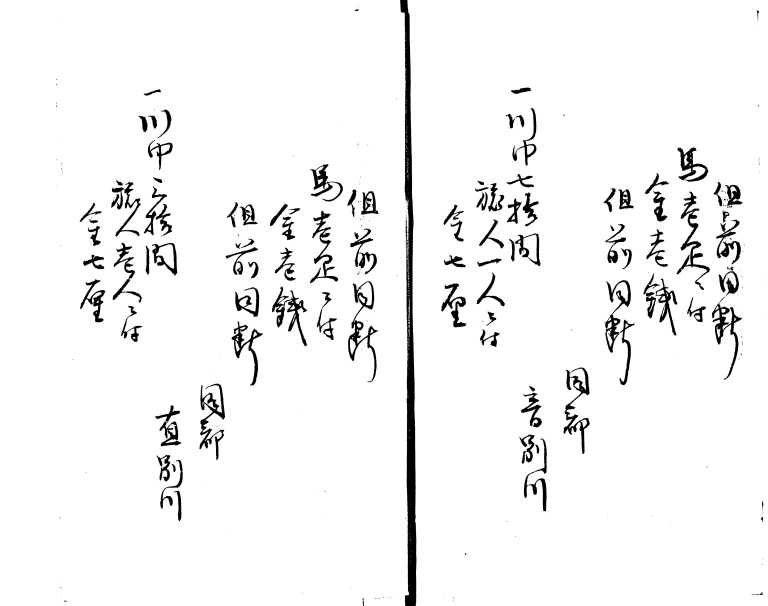 但前同断
馬壱疋ニ付
金壱銭
但前同断
同郡
音別川
一川巾七拾間
旅人一人ニ付
金七厘
但前同断
馬壱疋ニ付
金壱銭
但前同断
同郡
直別川
一川巾三拾間
旅人壱人ニ付
金七厘